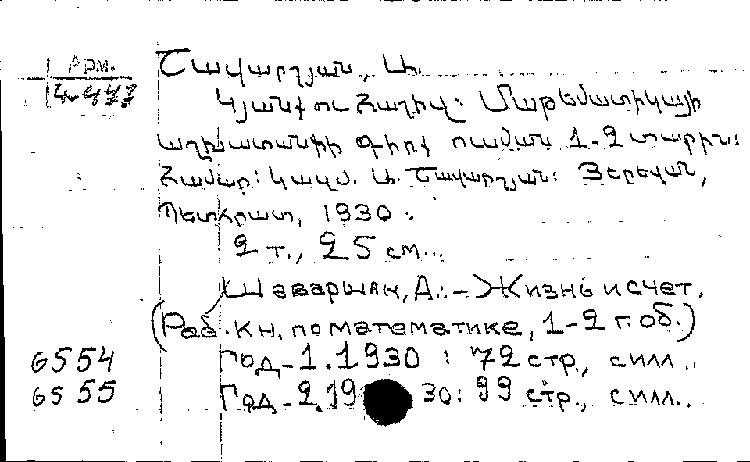 Арм.
4-477
Շավարշյան, Ա.
Կյանք ու հաշիվ: Մաթեմատիկայի
աշխատանքի գիրք ուսման 1-2 տարին:
համար: Կազմ. Ա. Շավարշյան: Յերևան,
Պետհրատ, 1930:
2 т., 25 см.
Шаваршян, А. – Жизнь и счет.
(Раб. кн. по математике, 1-2 г. об.)
6554 Год-1. 1930: 72 стр., с илл.
6555 Год-2. 1930: 99 стр., с илл.